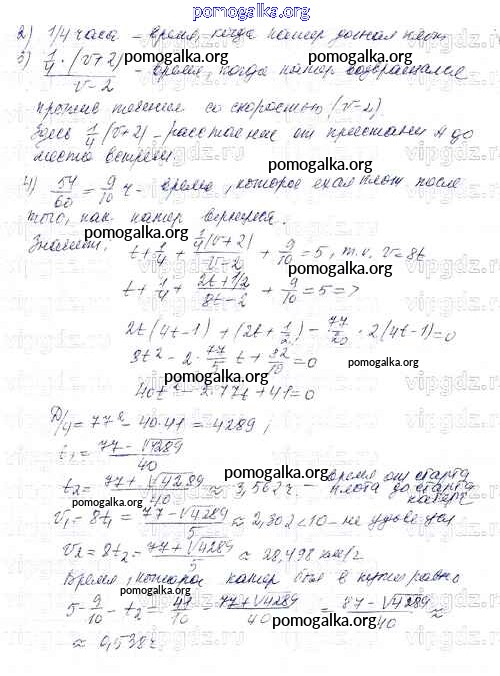 pomogalka.org
2) 1/4 часа – время, когда катер догнал плот
3) \frac{\frac{1}{4} \cdot (v+2)}{v-2} – время, когда катер возвращался
против течения со скоростью (v-2).
Здесь \frac{1}{4}(v+2) – расстояние от пристани A до
места встречи.
4) \frac{54}{60} = \frac{9}{10} ч – время, которое ехал плот после
того, как катер вернулся.
Значит: t + \frac{1}{4} + \frac{\frac{1}{4}(v+2)}{v-2} + \frac{9}{10} = 5, т.к. v = 8t
t + \frac{1}{4} + \frac{2t+1/2}{8t-2} + \frac{9}{10} = 5 =>
2t(4t-1) + (2t+\frac{1}{2}) - \frac{77}{20} \cdot 2(4t-1) = 0
8t² - 2 \cdot \frac{77}{5} t + \frac{82}{10} = 0
40t² - 2 \cdot 77t + 41 = 0
D/4 = 77² - 40 \cdot 41 = 4289;
t₁ = \frac{77-\sqrt{4289}}{40}
t₂ = \frac{77+\sqrt{4289}}{40} ≈ 3,562 ч. – время от старта
плота до старта
катера
v₁ = 8t₁ = \frac{77-\sqrt{4289}}{5} ≈ 2,302 < 10 – не удовл
v₂ = 8t₂ = \frac{77+\sqrt{4289}}{5} ≈ 28,498 км/ч
Время, которое катер был в пути равно
5 - \frac{9}{10} - t₂ = \frac{41}{10} - \frac{77+\sqrt{4289}}{40} = \frac{87-\sqrt{4289}}{40} ≈
≈ 0,538 ч.
pomogalka.org